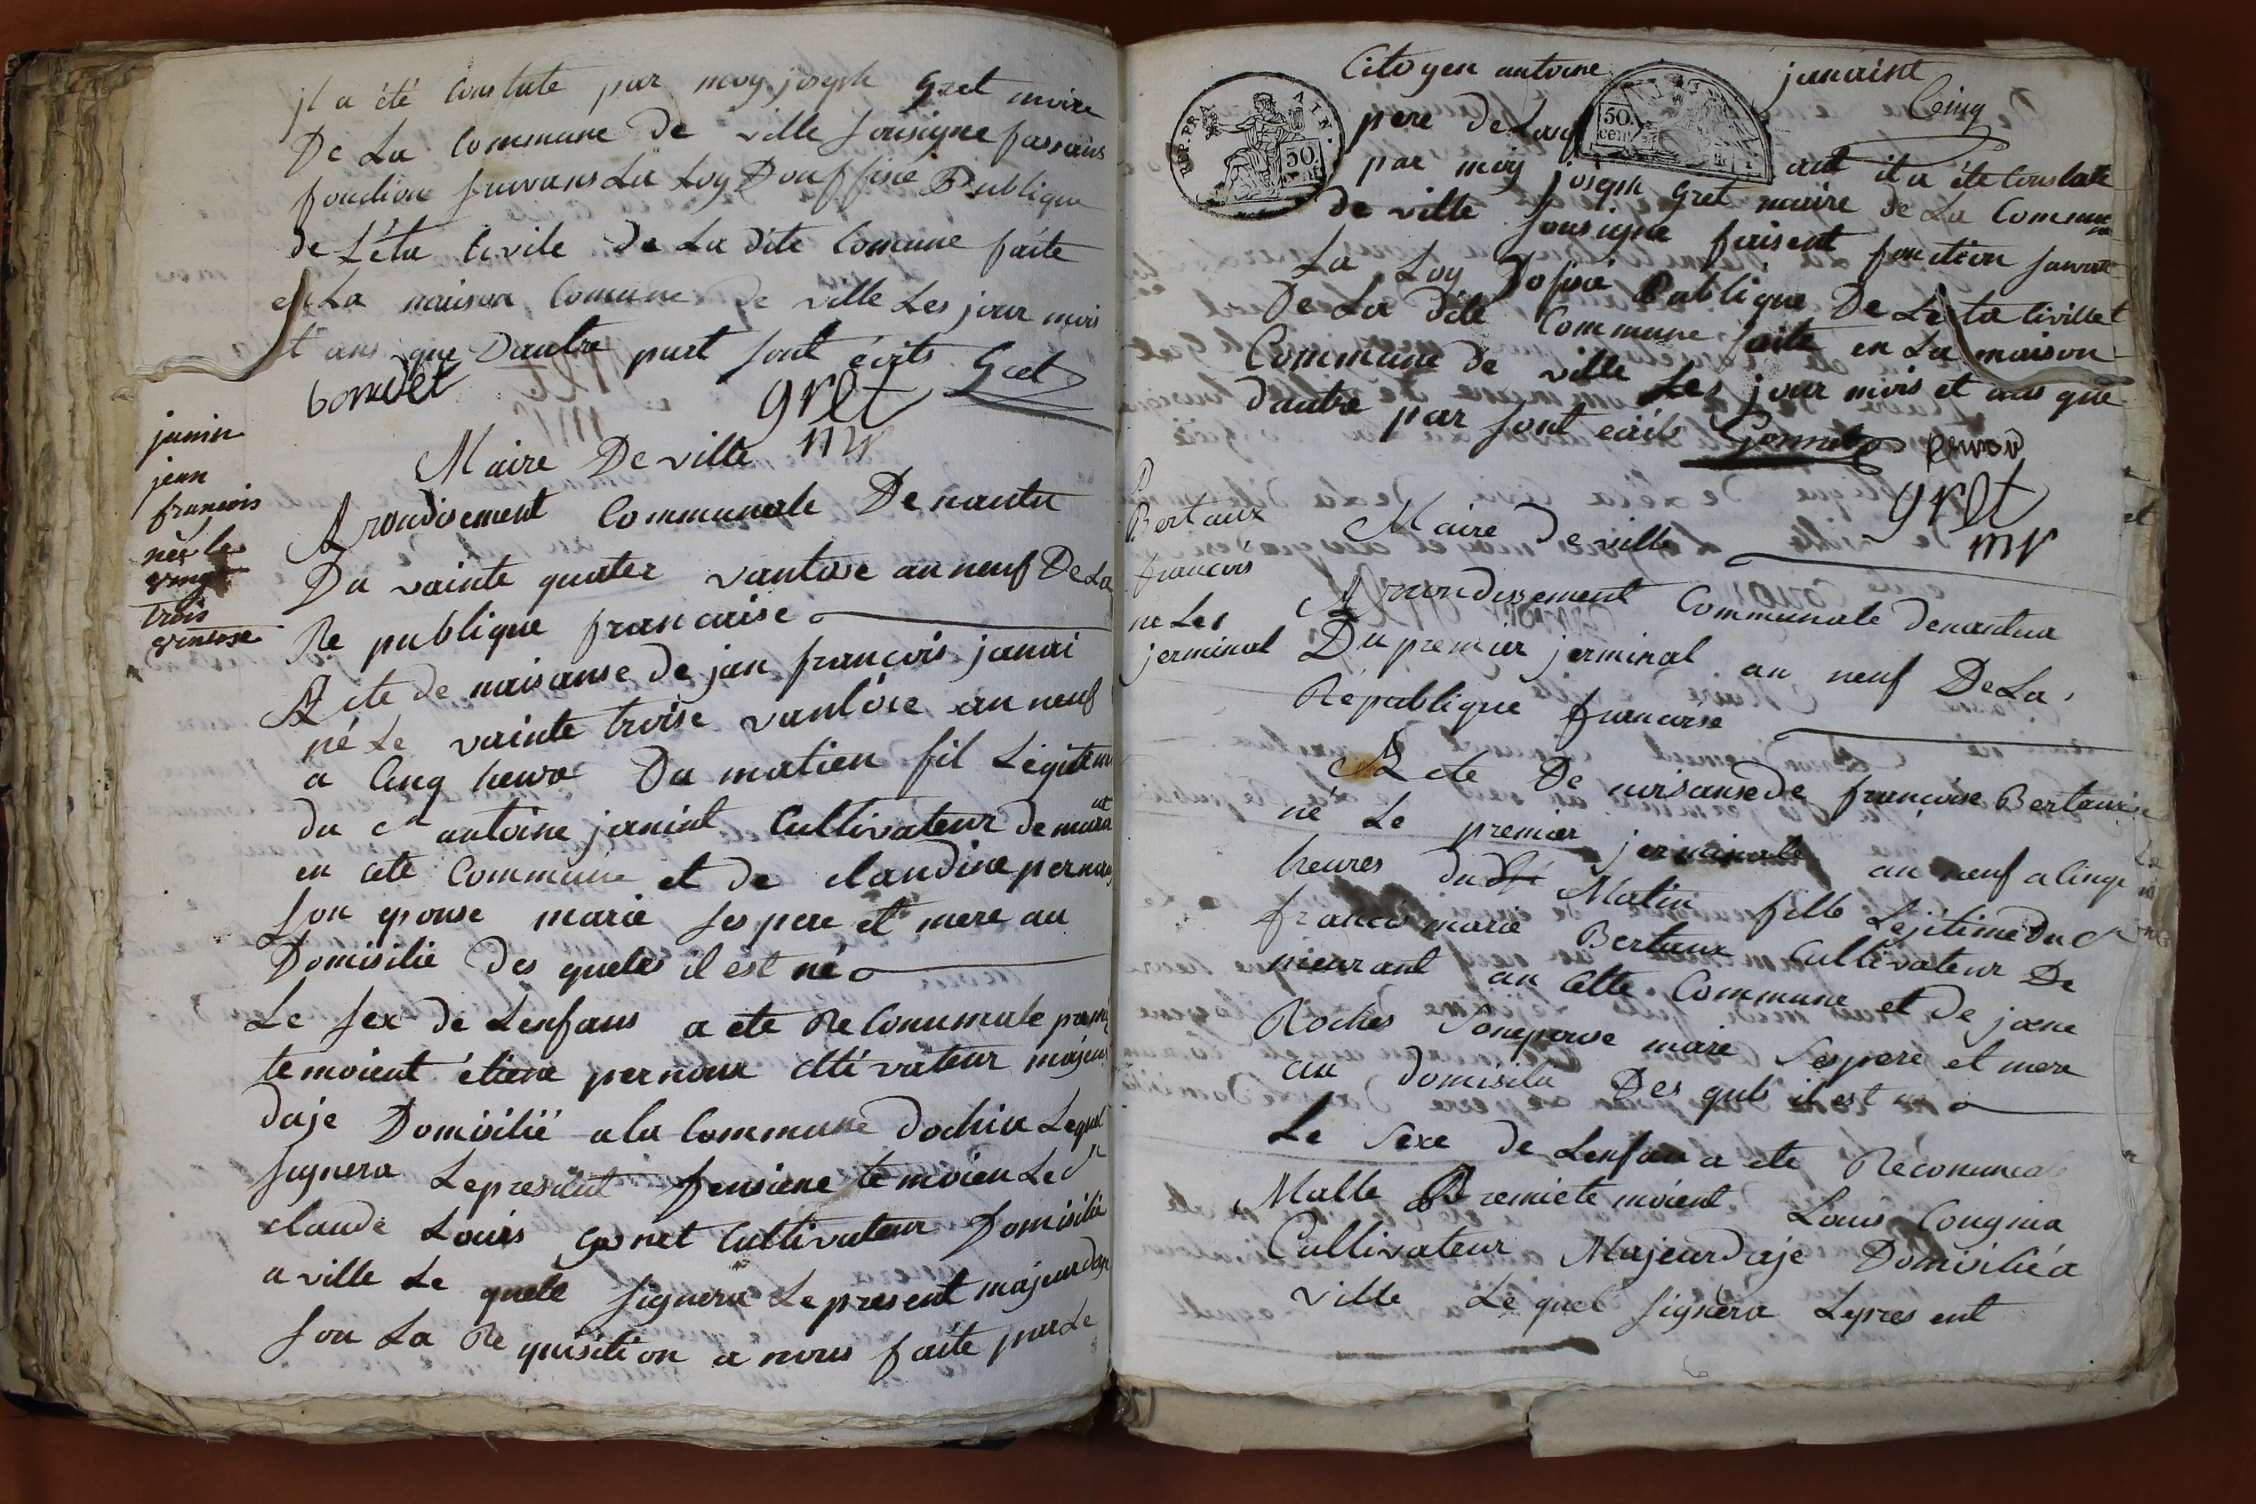 jl a été Constate par moy joseph gret maire
De La Commune de ville sousigne fassans
fonction suivans La Loy D'ouffisie Publique
de L'éta Civile De La dite Comune faite
en La maison Comune de ville Les jour mois
et ans que Dautre part sont écrits Gret
bonvoet gret
mr
janin
jean
francois
née le
vingt
trois
ventose
Maire De ville
Arondisement Communale De nantu
Du vainte quater vantose an neuf De La
Re publique francaise
Acte de naisanse de jan francois janai
né Le vainte troise vantose an neuf
a Cinq heure Du matien fil Legiteme
du Cn antoine janint Cultivateur de murant
en cete Commune et de claudine pernou
son epouse marie ses pere et mere au
Domisilié des queles il est né
Le sex de Lenfans a ete Reconumale premié
temoient étiene pernoux Cltivateur majeur
daje Domisilié a la Commune dochia Lequel
signera Le present sensiene temoien Le Cn
claude Louis gonet Cultivateur Domisilié
a ville Le quele signera Le present majeur daje
sou La Requisition a nous faite par Le
Citoyen antoine janaint
Cinq
REP. FRA. AIN.
50
50
cent
pere de Lanf ant il a éte Constate
par moy joseph Gret maire de La Commune
de ville sousigné faisent fonction suivant
La Loy Dofisié Publique De Leta Civille
De La dite Commune faite en La maison
Commune de ville Les jour mois et ans que
dautre par sont ecrit Gonnet pernou
gret
mr
Bertaux
francois
ne Le 1
jerminal
Maire De ville
Arrondissement Communale denantua
Du premier jerminal an neuf De La
République francoise
Acte De noisanse de francoise Bertaux
né Le premier jerminale an neuf a Cinqe
heures du Matin fille Lejitime Du Cn
francos marie Bertaux Cultivateur De
meurant an Cette Commune et de jane
Roches Son epouse marie Ses pere et mere
au domisilie Des quels il est né
Le Sexe de Lenfan a ete Reconumeale
Malle Premie te moient Louis Cougnia
Cultivateur Majeur daje Domisilié a
Ville Le quel Signera Lepres ent